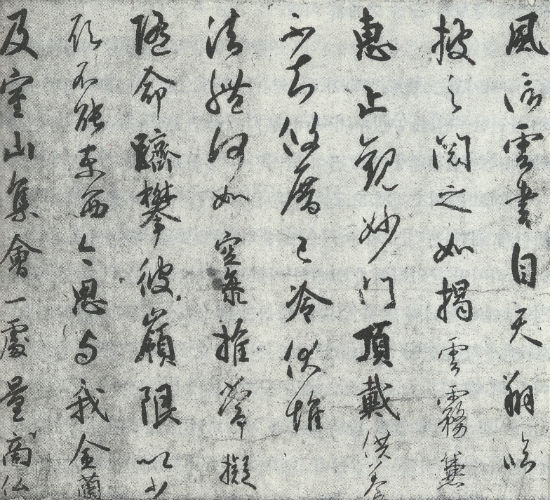 風信雲書自天翔臨
披之閲之如揭雲霧兼
恵止觀妙門頂戴供養
不知攸厝已冷伏惟
法體何如空海推常擬
隨命躋攀彼嶺限以少
願不能東西今思与我金蘭
及室山集會一處量商仏